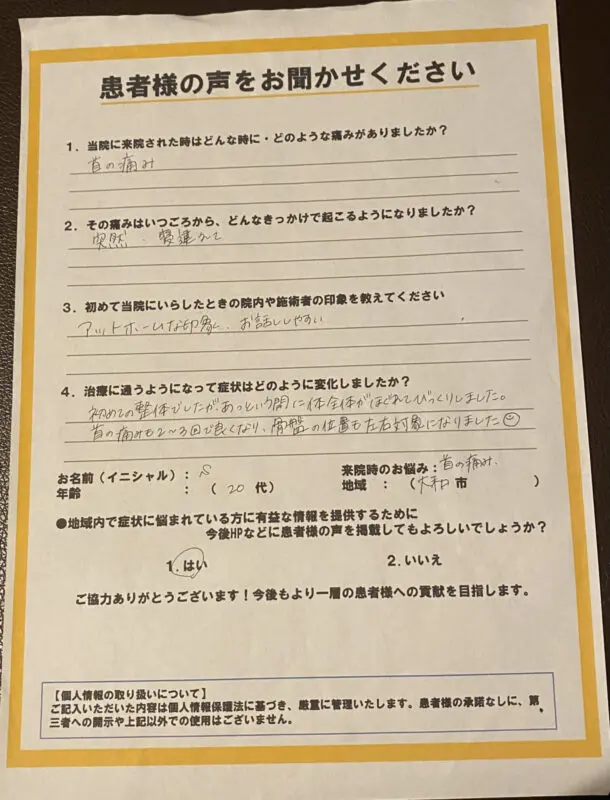 患者様の声をお聞かせください
1．当院に来院された時はどんな時に・どのような痛みがありましたか？
首の痛み
2．その痛みはいつごろから、どんなきっかけで起こるようになりましたか？
突然、寝違えて
3．初めて当院にいらしたときの院内や施術者の印象を教えてください
アットホームな印象、お話ししやすい
4．治療に通うようになって症状はどのように変化しましたか？
初めての整体でしたが、あっという間に体全体がほぐれてびっくりしました。
首の痛みも2〜3回で良くなり、骨盤の位置も左右対象になりました☺
お名前（イニシャル）：S 来院時のお悩み：首の痛み、
年齢 ：（ 20 代） 地域 ：（大和市 ）
●地域内で症状に悩まれている方に有益な情報を提供するために
今後HPなどに患者様の声を掲載してもよろしいでしょうか？
1．はい 2．いいえ
ご協力ありがとうございます！今後もより一層の患者様への貢献を目指します。
【個人情報の取り扱いについて】
ご記入いただいた内容は個人情報保護法に基づき、厳重に管理いたします。患者様の承諾なしに、第
三者への開示や上記以外での使用はございません。